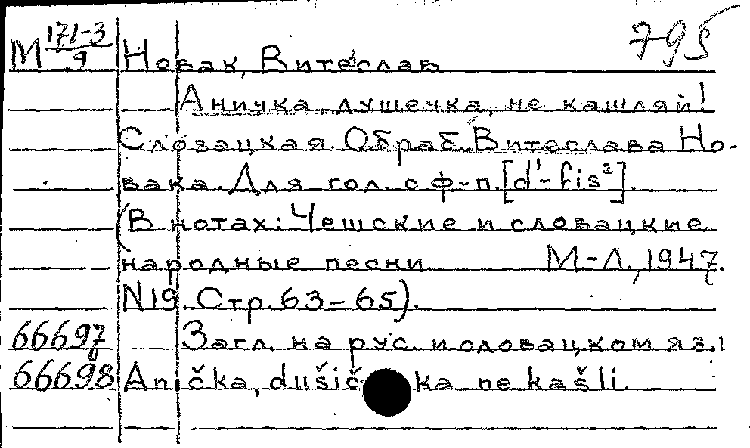 795
М 171-3/9 Новак, Витеслав
Аничка, душечка, не кашляй!
Словацкая. Обраб. Витеслава Но-
вака. Для гол. с ф-п. [d¹-fis²].
(В нотах: Чешские и словацкие
народные песни М-Л., 1947.
N19. Стр. 63-65).
66697 Загл. на рус. и словацком яз.:
66698 Anička, dušička nekašli.